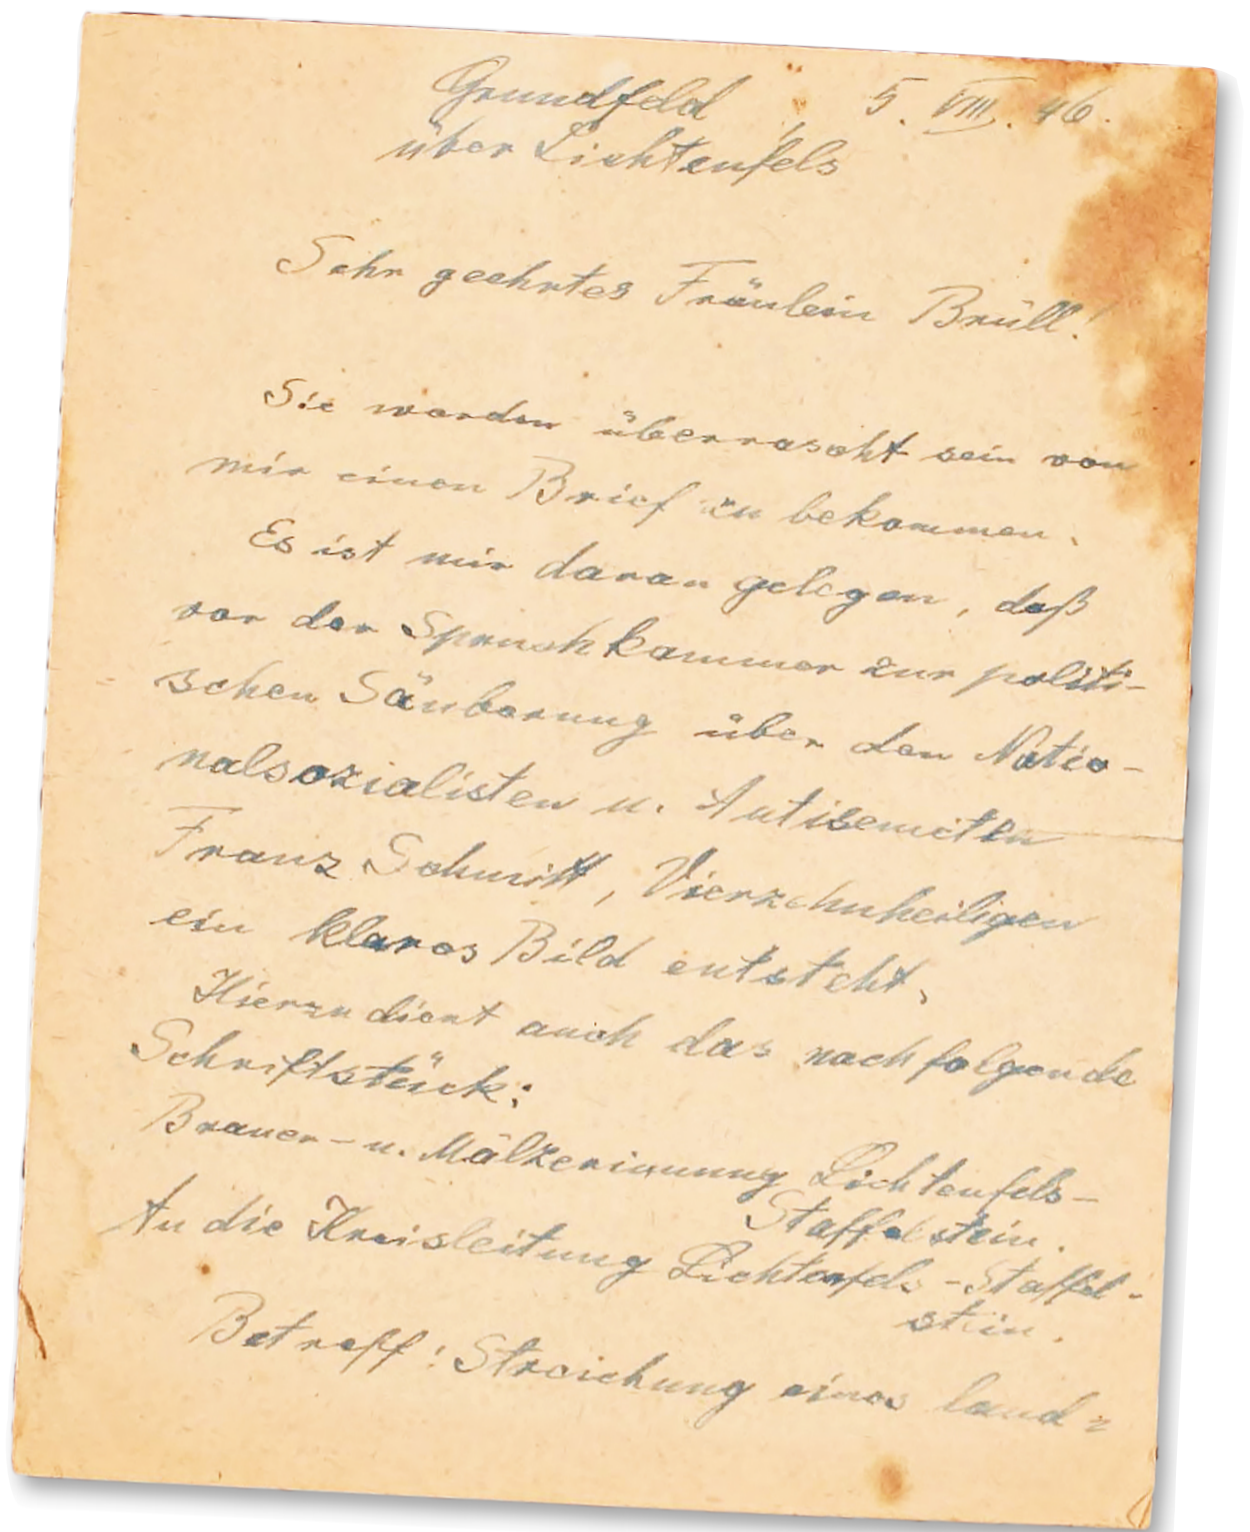 Grundfeld, 5. VIII. 46.
über Lichtenfels
Sehr geehrtes Fräulein Brüll!
Sie werden überrascht sein von
mir einen Brief zu bekommen.
Es ist mir daran gelegen, daß
vor der Spruchkammer zur politi-
schen Säuberung über den Natio-
nalsozialisten u. Antisemiten
Franz Schmitt, Vierzehnheiligen
ein klares Bild entsteht.
Hierzu dient auch das nachfolgende
Schriftstück:
Brauer- u. Mälzerinnung Lichtenfels-
Staffelstein.
An die Kreisleitung Lichtenfels-Staffel-
stein.
Betreff: Streichung eines land-